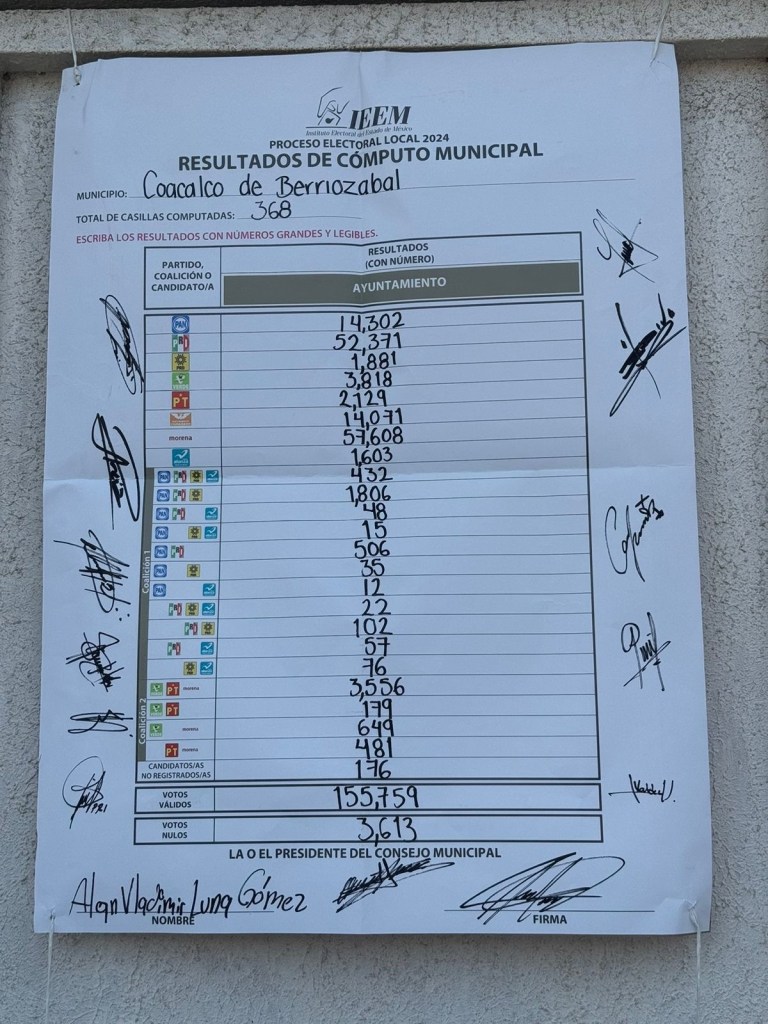 IEEM
Instituto Electoral del Estado de México
PROCESO ELECTORAL LOCAL 2024
RESULTADOS DE CÓMPUTO MUNICIPAL
MUNICIPIO: Coacalco de Berriozabal
TOTAL DE CASILLAS COMPUTADAS: 368
ESCRIBA LOS RESULTADOS CON NÚMEROS GRANDES Y LEGIBLES.
PARTIDO, COALICIÓN O CANDIDATO/A
RESULTADOS (CON NÚMERO)
AYUNTAMIENTO
PAN 14,302
PRI 52,371
PRD 1,881
VERDE 3,818
PT 2,129
14,071
morena 57,608
1,603
Coalición 1
PAN PRI PRD 432
PAN PRI PRD 1,806
PAN PRI 48
PAN PRD 15
PAN PRI 506
PAN PRD 35
PAN 12
PRI PRD 22
PRI PRD 102
PRI 57
PRD 76
Coalición 2
VERDE PT morena 3,556
VERDE PT 179
VERDE morena 649
PT morena 481
CANDIDATOS/AS NO REGISTRADOS/AS 176
VOTOS VÁLIDOS 155,759
VOTOS NULOS 3,613
LA O EL PRESIDENTE DEL CONSEJO MUNICIPAL
Alan Vladimir Luna Gómez
NOMBRE
FIRMA